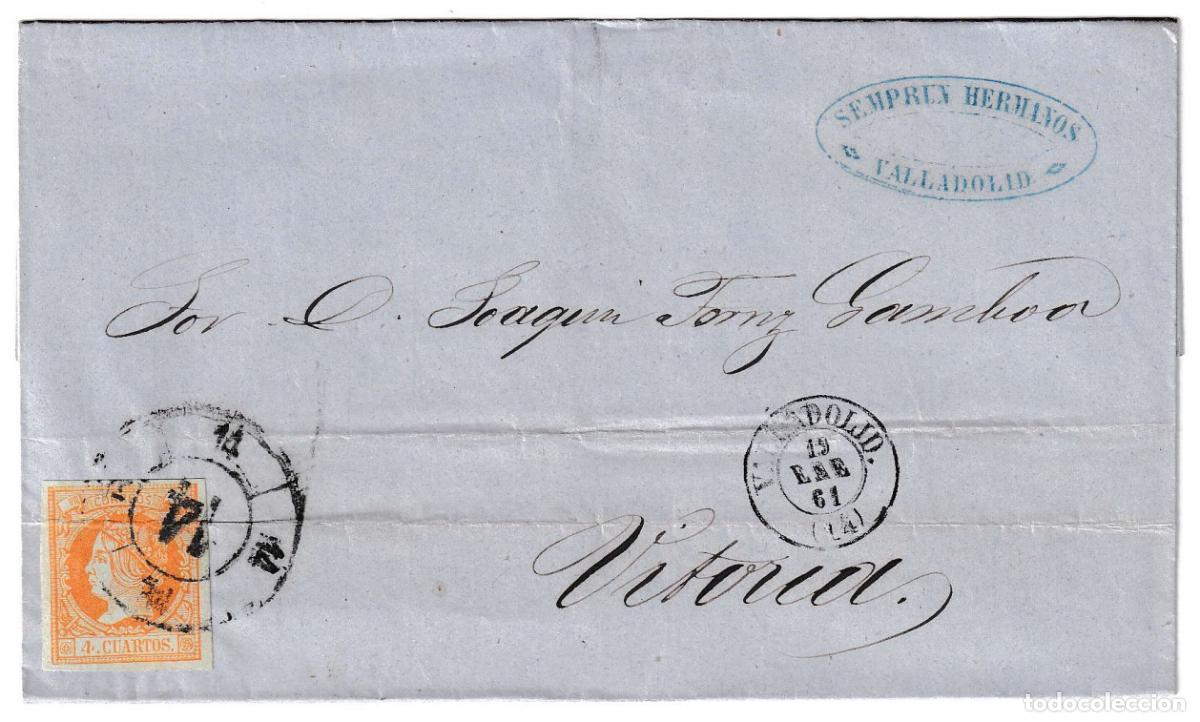 SEMPRUN HERMANOS
VALLADOLID
Sor. D. Joaquin Fornz Gamboa
VALLADOLID.
19
ENE
61
(14)
Vitoria.
14
14
14
4 CUARTOS.
todocoleccion